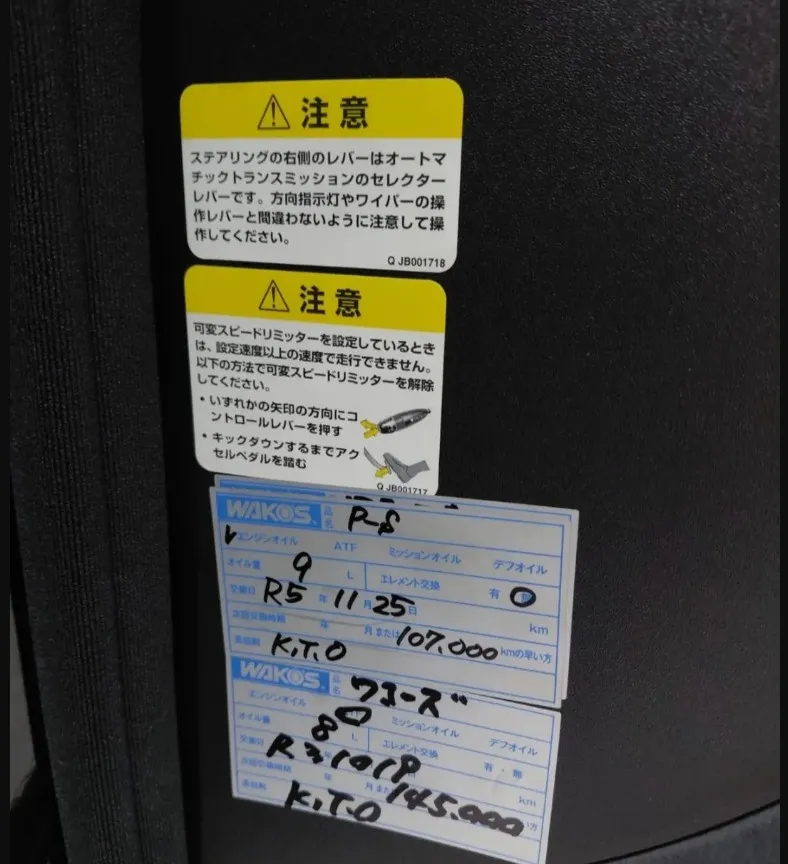 注意
ステアリングの右側のレバーはオートマ
チックトランスミッションのセレクター
レバーです。方向指示灯やワイパーの操
作レバーと間違わないように注意して操
作してください。
Q JB001718
注意
可変スピードリミッターを設定しているとき
は、設定速度以上の速度で走行できません。
以下の方法で可変スピードリミッターを解除
してください。
・いずれかの矢印の方向にコ
ントロールレバーを押す
・キックダウンするまでアク
セルペダルを踏む
Q JB001717
WAKO'S 品名 P-S
エンジンオイル ATF ミッションオイル デフオイル
オイル量 9 L エレメント交換 有 無
交換日 R5年11月25日 km
次回交換時期 年 月または107.000kmの早い方
K.T.O
WAKO'S 品名 ワコーズ
エンジンオイル ミッションオイル デフオイル
オイル量 8 L エレメント交換 有・無
交換日 R31019 km
次回交換時期 年 月また145.000い方
K.T.O